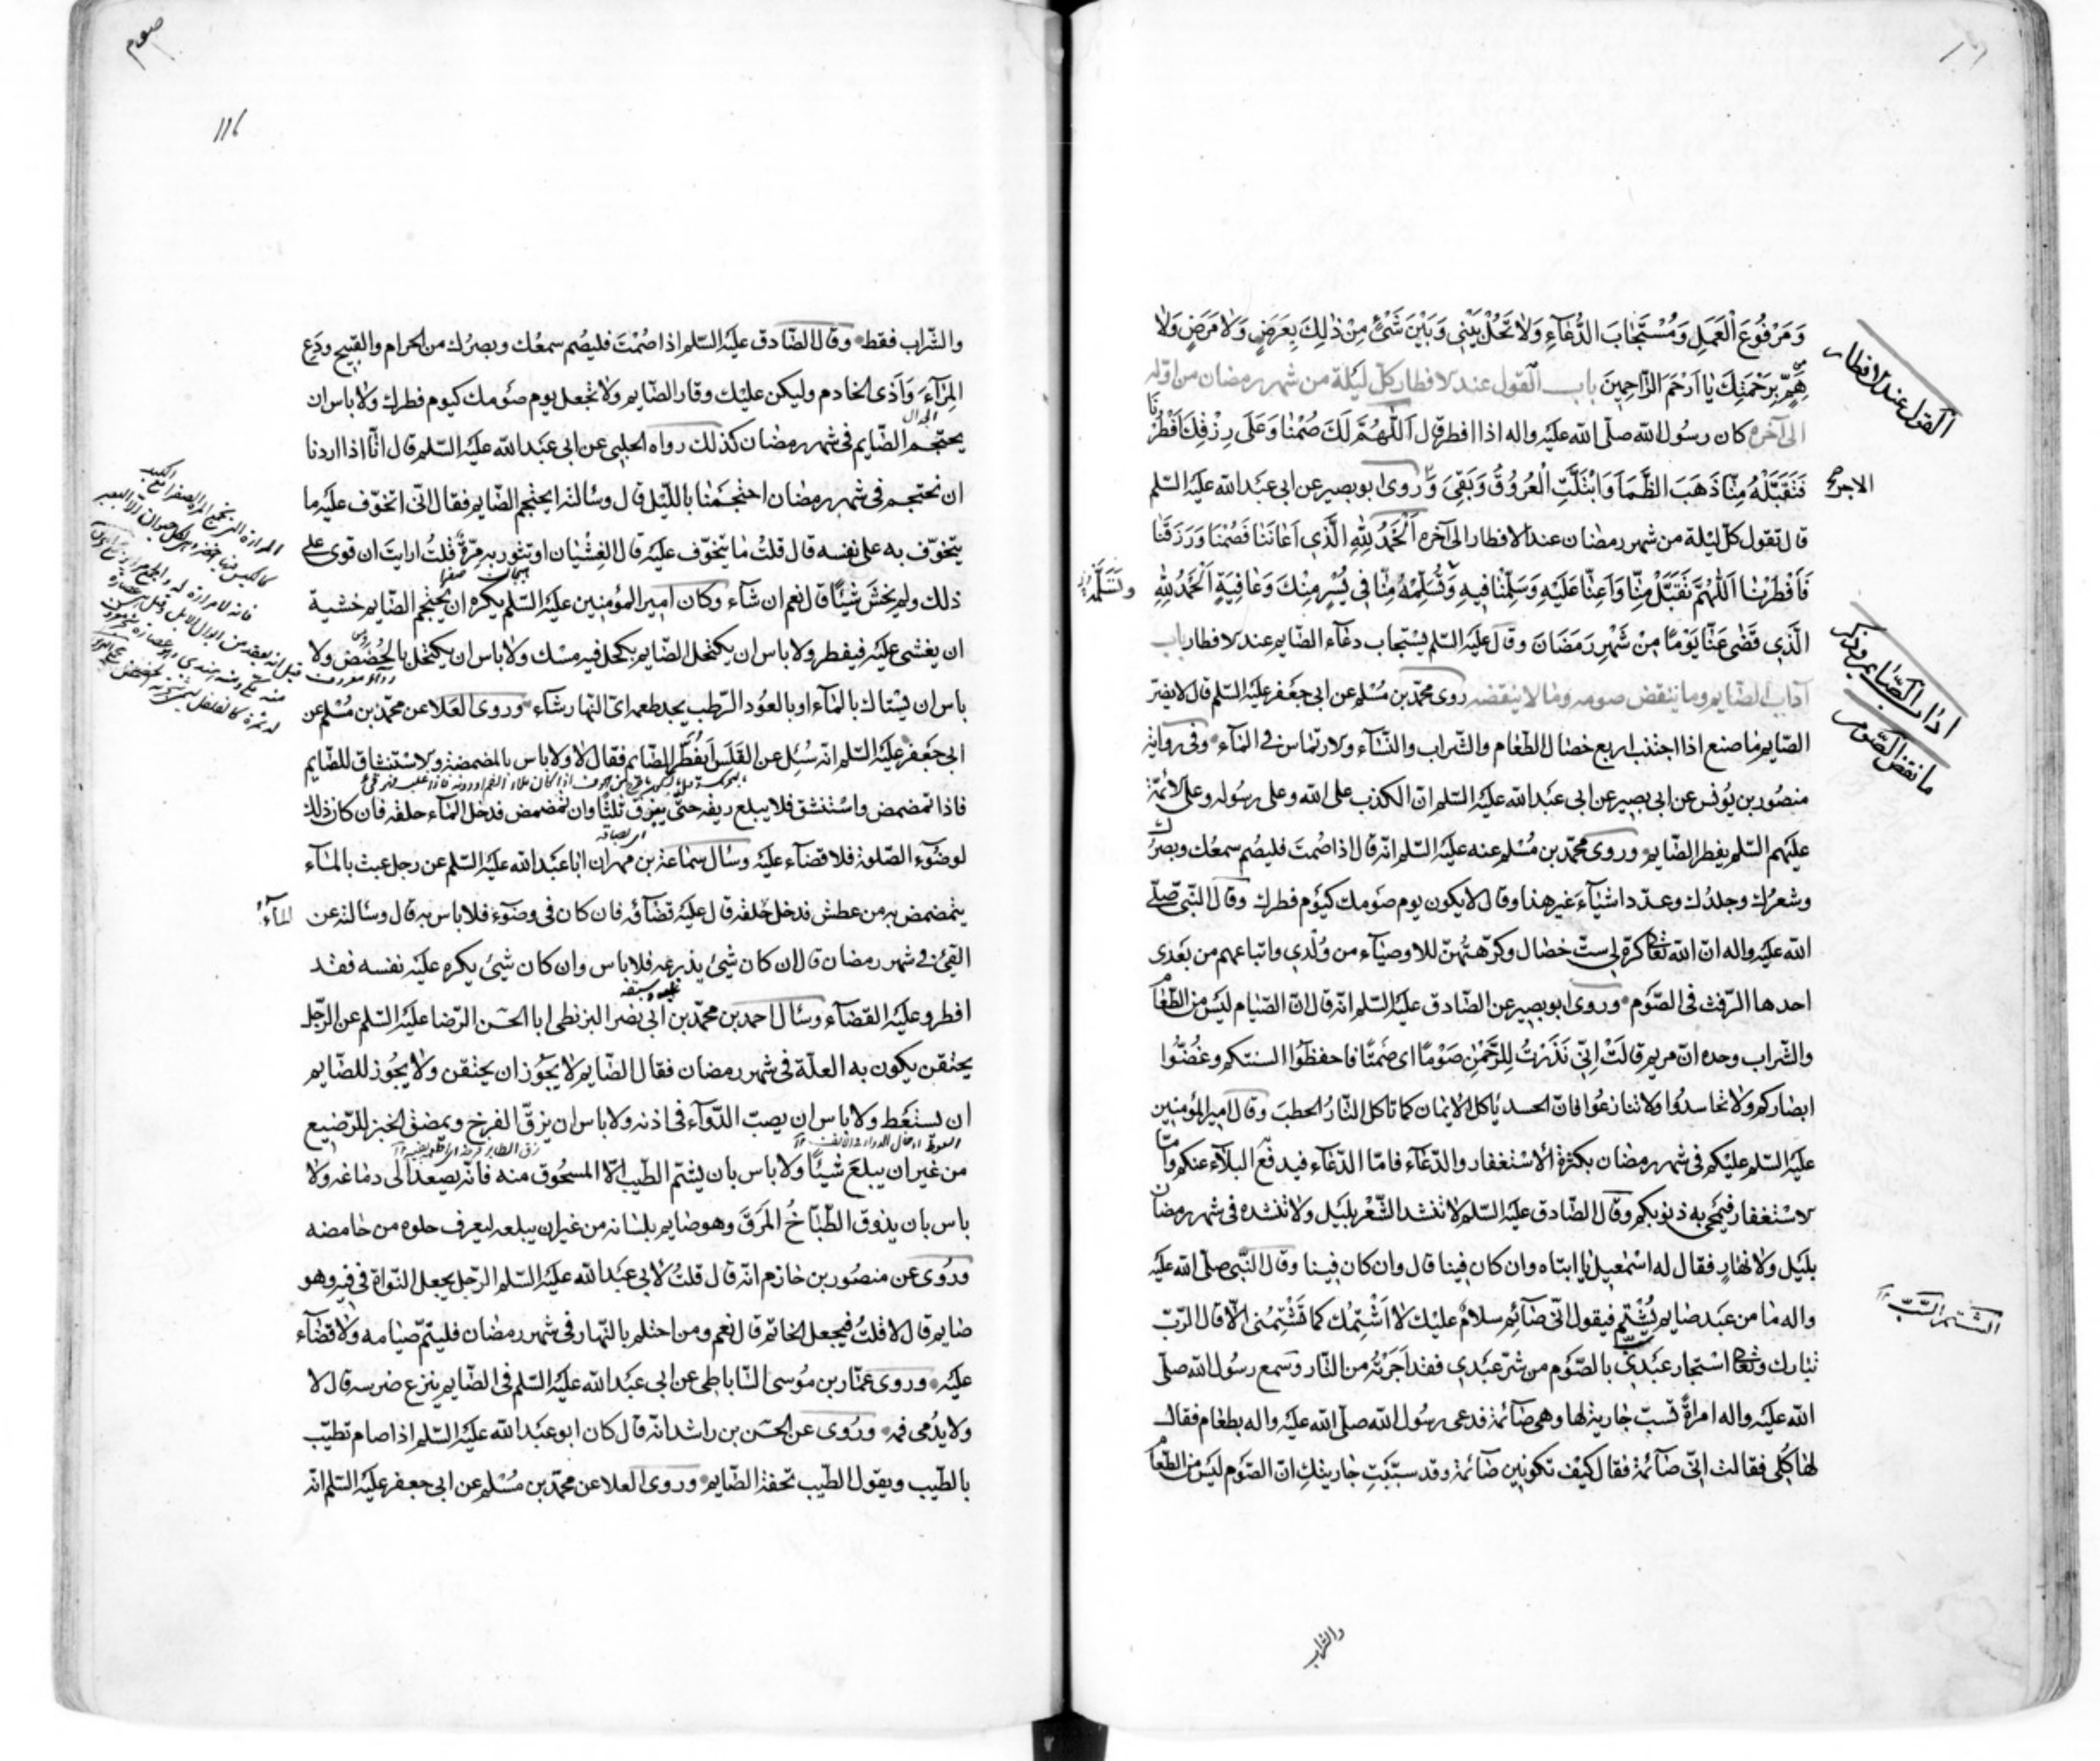 وَمَرْفُوعَ الْعَمَلِ وَمُسْتَجَابَ الدُّعَاءِ وَلَا تَحُلْ بَيْنِي وَبَيْنَ شَيْءٍ مِنْ ذٰلِكَ بِعَرَضٍ وَلَا مَرَضٍ وَلَا
هَمٍّ بِرَحْمَتِكَ يَا اَرْحَمَ الرَّاحِمِينَ باب القول عند الافطار كلّ ليلة من شهر رمضان من اوّله
القول عند الافطار
الى آخره كان رسول الله صلّى الله عليه واله اذا افطر قال اَللّٰهُمَّ لَكَ صُمْنَا وَعَلَى رِزْقِكَ اَفْطَرْنَا
فَتَقَبَّلْهُ مِنَّا ذَهَبَ الظَّمَأُ وَابْتَلَّتِ الْعُرُوقُ وَبَقِيَ وَروى ابو بصير عن ابي عبد الله عليه السّلم
الاجر
قال تقول كلّ ليلة من شهر رمضان عند الافطار الى آخره اَلْحَمْدُ لِلّٰهِ الَّذِي اَعَانَنَا فَصُمْنَا وَرَزَقَنَا
فَاَفْطَرْنَا اَللّٰهُمَّ تَقَبَّلْ مِنَّا وَاَعِنَّا عَلَيْهِ وَسَلِّمْنَا فِيهِ وَتَسَلَّمْهُ مِنَّا فِي يُسْرٍ مِنْكَ وَعَافِيَةٍ اَلْحَمْدُ لِلّٰهِ
وتسلّمه
الَّذِي قَضٰى عَنَّا يَوْمًا مِنْ شَهْرِ رَمَضَانَ وقال عليه السّلم يستجاب دعاء الصّايم عند الافطار باب
آداب الصّايم وما ينقض صومه وما لا ينقضه روى محمّد بن مسلم عن ابي جعفر عليه السّلم قال لا يضرّ
اداب الصّايم وذكر
ما نقض الصّوم
الصّايم ما صنع اذا اجتنب اربع خصال الطعام والشّراب والنّساء والارتماس في الماء وفي رواية
منصور بن يونس عن ابي بصير عن ابي عبد الله عليه السّلم انّ الكذب على الله وعلى رسوله وعلى الائمّة
عليهم السّلم يفطر الصّايم وروى محمّد بن مسلم عنه عليه السّلم انّه قال اذا صمت فليصم سمعك وبصرك
وشعرك وجلدك وعدّد اشياء غير هذا وقال لا يكون يوم صومك كيوم فطرك وقال النّبي صلّى
الله عليه واله انّ الله تعالى كره لي ستّ خصال وكرّهتهنّ للاوصياء من ولدي واتباعهم من بعدي
احدها الرّفث في الصّوم وروى ابو بصير عن الصّادق عليه السّلم انّه قال انّ الصّيام ليس من الطّعام
والشّراب وحده انّ مريم قالت اِنِّي نَذَرْتُ لِلرَّحْمٰنِ صَوْمًا اي صمتًا فاحفظوا السنتكم وغضّوا
ابصاركم ولا تحاسدوا ولا تنازعوا فانّ الحسد ياكل الايمان كما تاكل النّار الحطب وقال امير المؤمنين
عليه السّلم عليكم في شهر رمضان بكثرة الاستغفار والدّعاء فامّا الدّعاء فيدفع البلاء عنكم وامّا
الاستغفار فيمحى به ذنوبكم وقال الصّادق عليه السّلم لا تنشد الشّعر بليل ولا تنشده في شهر رمضان
بليل ولا نهار فقال له اسمعيل يا ابتاه وان كان فينا قال وان كان فينا وقال النّبي صلّى الله عليه
واله ما من عبد صايم يشتم فيقول انّي صائم سلام عليك لا اشتمك كما تشتمني الّا قال الرّبّ
الشتم السّبّ
تبارك وتعالى استجار عبدي بالصّوم من شرّ عبدي فقد اجرته من النّار وسمع رسول الله صلّى
الله عليه واله امراة تسبّ جارية لها وهي صائمة فدعى رسول الله صلّى الله عليه واله بطعام فقال
لها كلي فقالت انّي صائمة فقال كيف تكونين صائمة وقد سببت جاريتك انّ الصّوم ليس من الطّعام
والشراب
صوم
116
والشّراب فقط وقال الصّادق عليه السّلم اذا صمت فليصم سمعك وبصرك من الحرام والقبيح ودع
المراء وَاَذى الخادم وليكن عليك وقار الصّايم ولا تجعل يوم صومك كيوم فطرك ولا باس ان
الجدال
يحتجم الصّايم في شهر رمضان كذلك رواه الحلبي عن ابي عبد الله عليه السّلم قال انّا اذا اردنا
ان نحتجم في شهر رمضان احتجمنا بالليل قال وسالته ايحتجم الصّايم فقال انّي اتخوّف عليه ما
يتخوّف به على نفسه قال قلت ما يتخوّف عليه قال الغشيان او تثور به مرّة قلت ارايت ان قوى على
ذلك ولم يخش شيئًا قال نعم ان شاء وكان امير المؤمنين عليه السّلم يكره ان يحتجم الصّايم خشية
ان يغشى عليه فيفطر ولا باس ان يكتحل الصّايم بكحل فيه مسك ولا باس ان يكتحل بالحضض ولا
باس ان يستاك بالماء او بالعود الرّطب يجد طعمه ايّ النّهار شاء وروى العلا عن محمّد بن مسلم عن
ابي جعفر عليه السّلم انّه سُئِل عن القَلَس اَيفطّر الصّايم فقال لا ولا باس بالمضمضة والاستنشاق للصّايم
فاذا تمضمض واستنشق فلا يبلع ريقه حتّى يبزق ثلثًا وان تمضمض فدخل الماء حلقه فان كان ذلك
لوضوء الصّلوة فلا قضاء عليه وسال سماعة بن مهران ابا عبد الله عليه السّلم عن رجل عبث بالماء
يتمضمض به من عطش فدخل حلقه قال عليه قضاؤه فان كان في وضوء فلا باس به قال وسالته عن
الماء
القيء في شهر رمضان قال ان كان شيئ يذرعه فلا باس وان كان شيئ يكره عليه نفسه فقد
افطر وعليه القضاء وسال احمد بن محمّد بن ابي نصر البزنطي ابا الحسن الرّضا عليه السّلم عن الرّجل
يحتقن يكون به العلّة في شهر رمضان فقال الصّايم لا يجوز ان يحتقن ولا يجوز للصّايم
ان يستعط ولا باس ان يصبّ الدّواء في اذنه ولا باس ان يزقّ الفرخ ويمضغ الخبز للرّضيع
من غير ان يبلع شيئًا ولا باس بان يشتمّ الطّيب الّا المسحوق منه فانّه يصعد الى دماغه ولا
باس بان يذوق الطّبّاخ المرق وهو صايم بلسانه من غير ان يبلعه ليعرف حلوه من حامضه
وروى عن منصور بن حازم انّه قال قلت لابي عبد الله عليه السّلم الرّجل يجعل النّواة في فيه وهو
صايم قال لا قلت فيجعل الخاتم قال نعم ومن احتلم بالنّهار في شهر رمضان فليتمّ صيامه ولا قضاء
عليه وروى عمّار بن موسى السّاباطي عن ابي عبد الله عليه السّلم في الصّايم ينزع ضرسه قال لا
ولا يدمى فمه وروى عن الحسن بن راشد انّه قال كان ابو عبد الله عليه السّلم اذا صام تطيّب
بالطّيب ويقول الطّيب تحفة الصّايم وروى العلا عن محمّد بن مسلم عن ابي جعفر عليه السّلم انّه